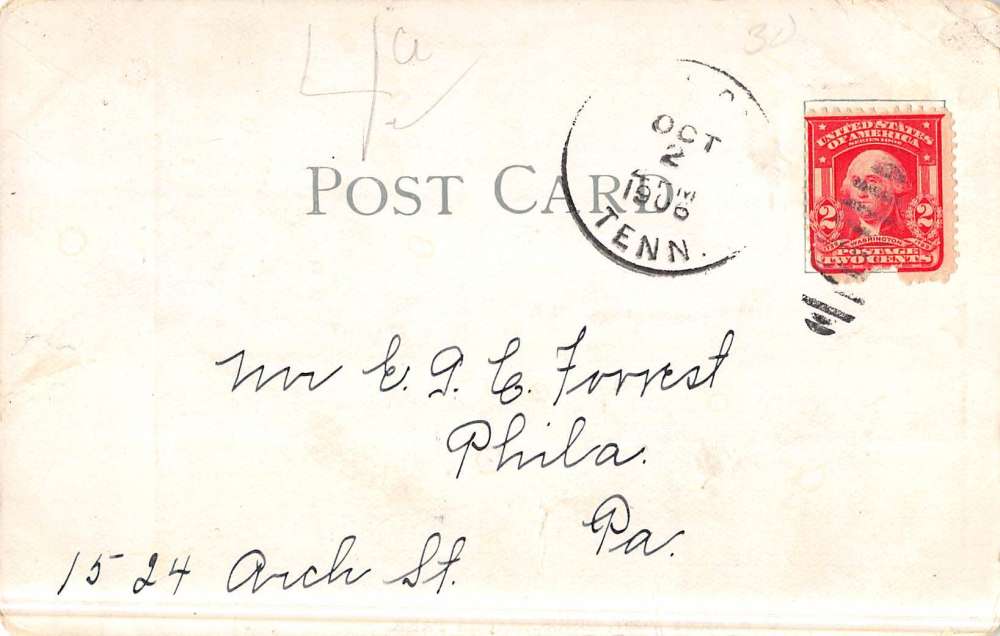 4a
30
OCT
2
M
1906
TENN.
UNITED STATES
OF AMERICA
SERIES 1902
2 2
WASHINGTON
POSTAGE
TWO CENTS
POST CARD
Mr E. G. C. Forrest
Phila.
Pa.
1524 Arch St.